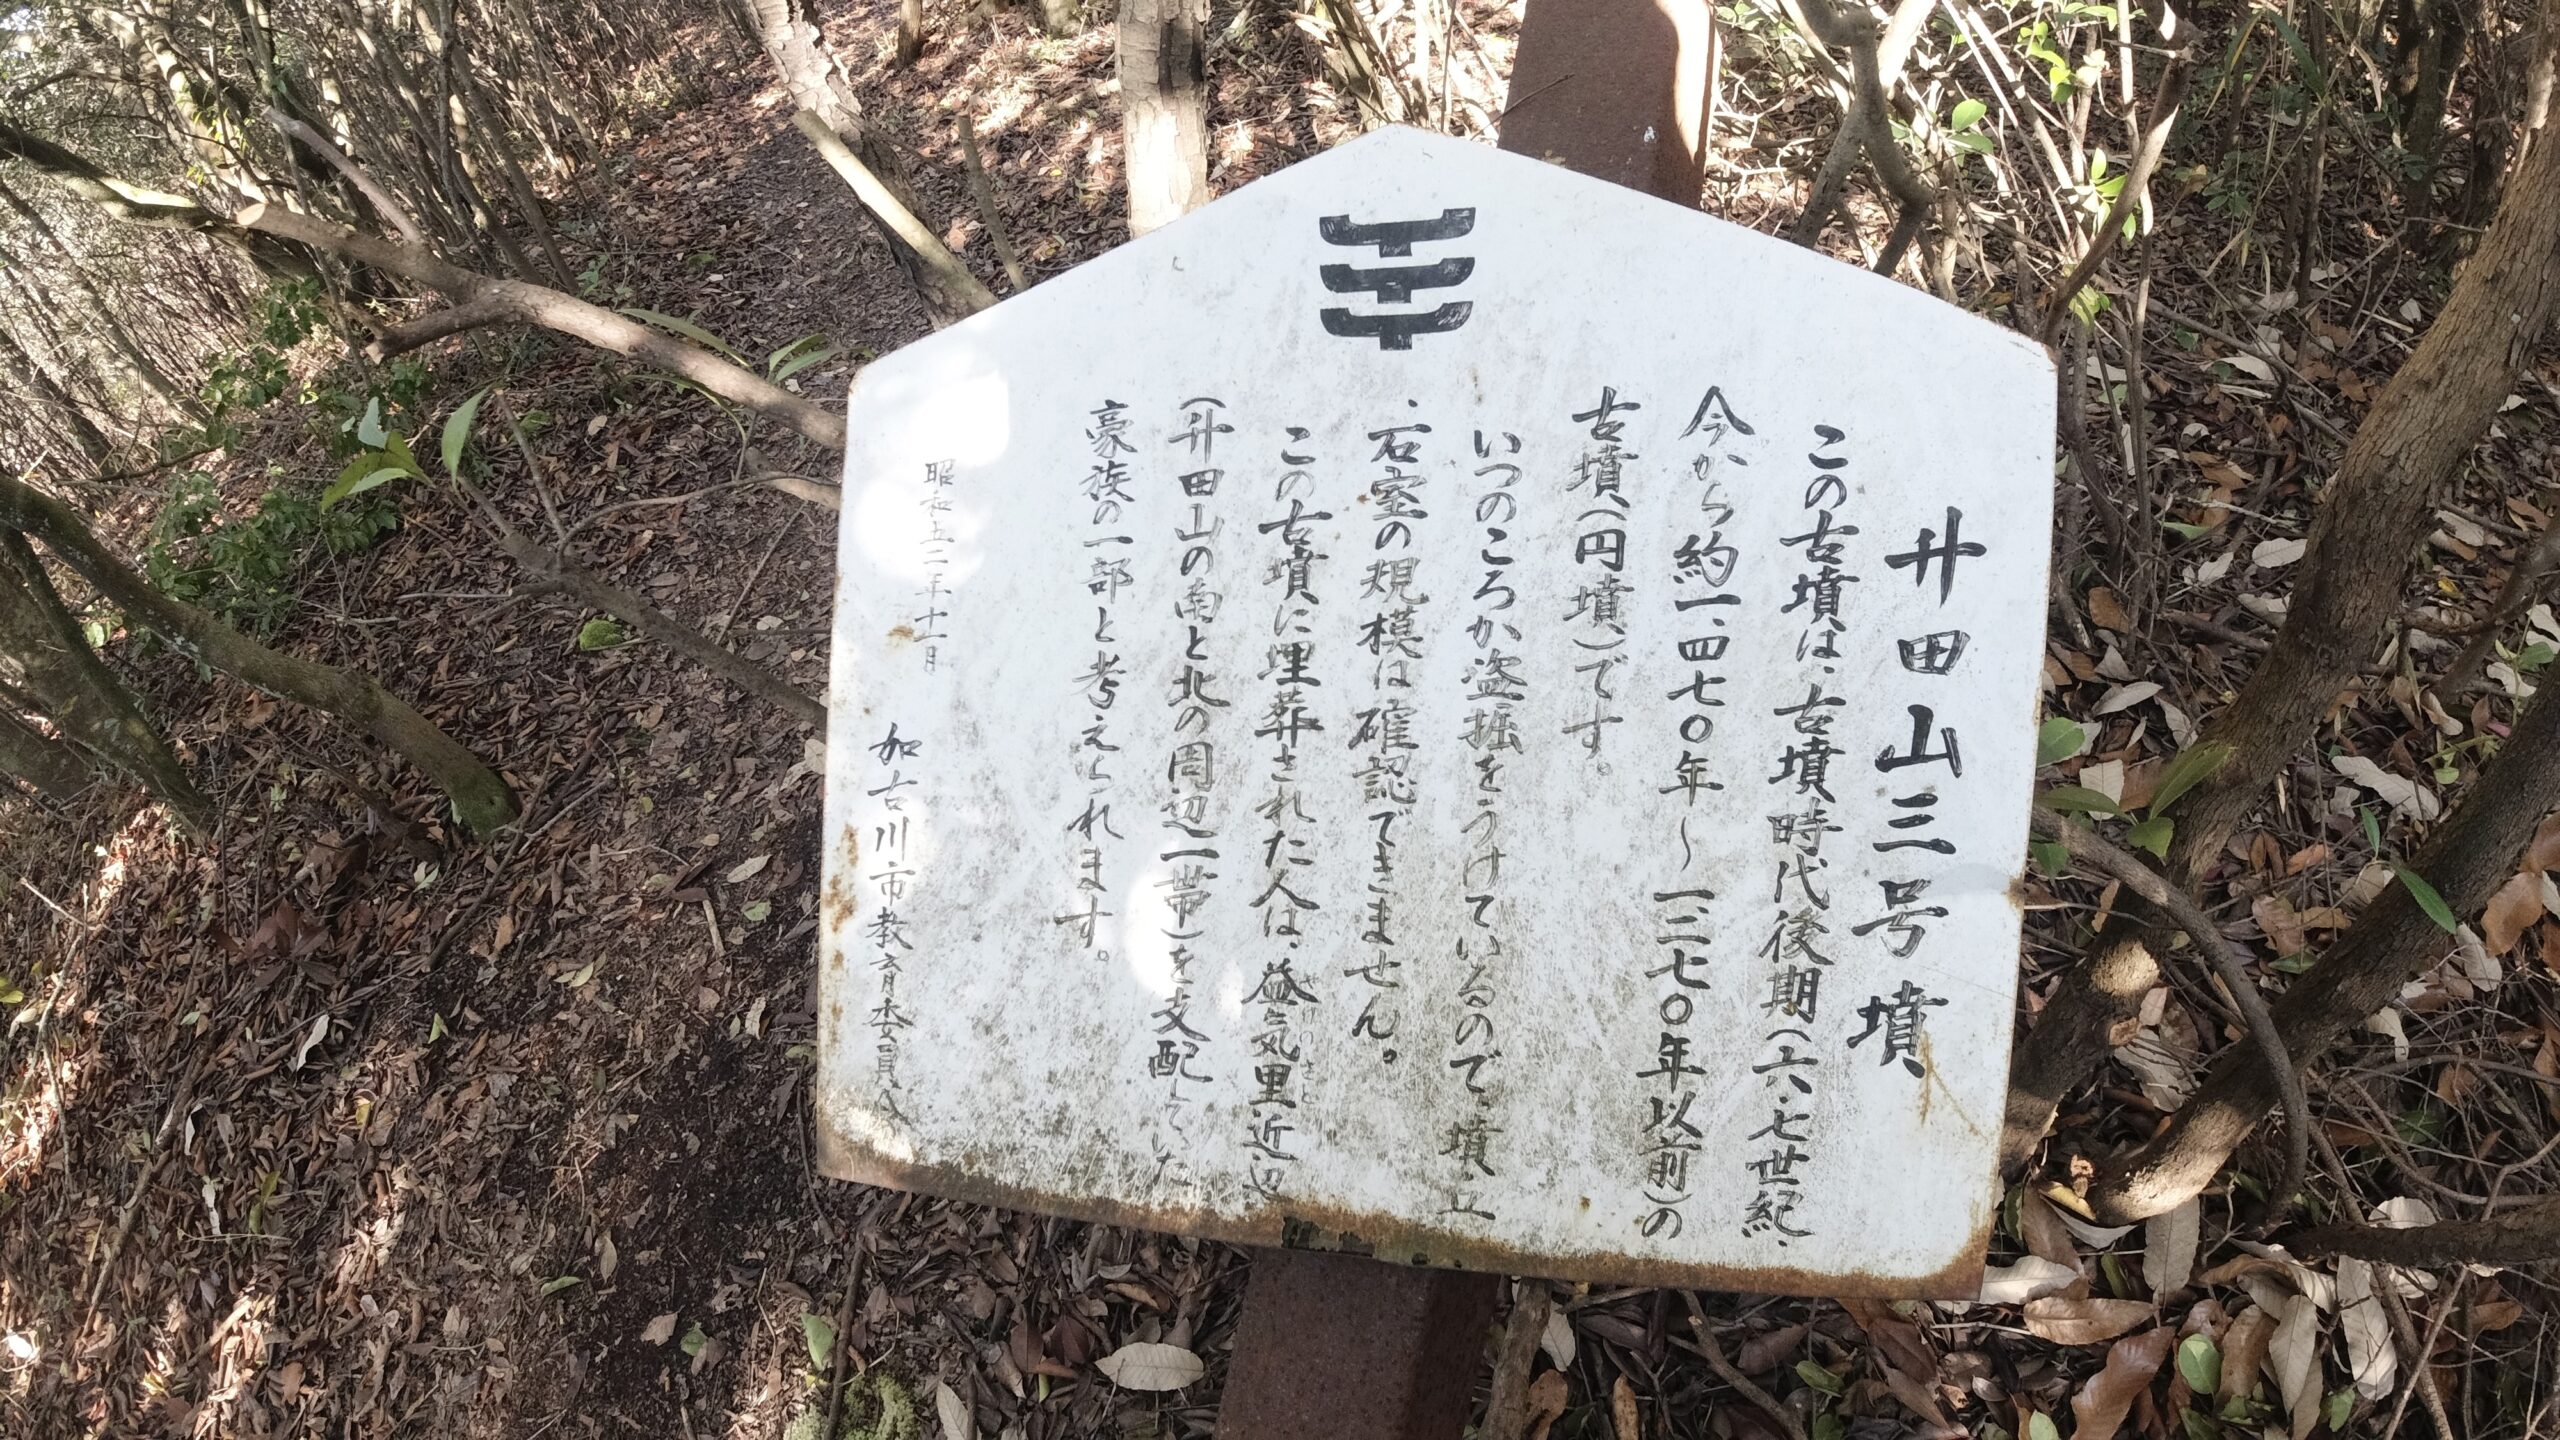 升田山三号墳
この古墳は、古墳時代後期(六・七世紀、
今から約一、四七〇年~一三七〇年以前)の
古墳(円墳)です。
いつのころか盗掘をうけているので、墳丘
・石室の規模は確認できません。
この古墳に埋葬された人は、益気里近辺
やけのさと
(升田山の南と北の周辺一帯)を支配していた
豪族の一部と考えられます。
昭和五二年十一月
加古川市教育委員会